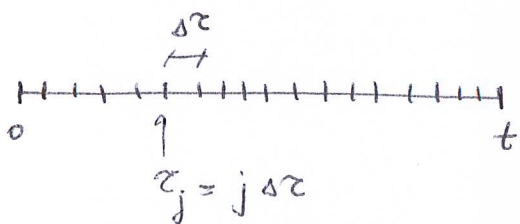 Δτ
0 t
τ_j = j Δτ